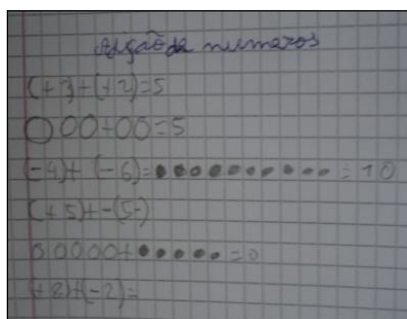 Adição de numeros
(+3)+(+2)=5
OOO+OO=5
(-4)+(-6)=●●●●●●●●●●=10
(+5)+-(5-)
OOOOO+●●●●●=0
(+2)+(-2)=